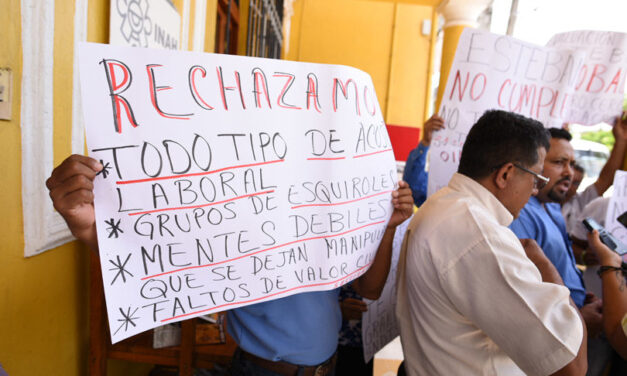 INAH
RECHAZAMO
* TODO TIPO DE ACOS
LABORAL
* GRUPOS DE ESQUIROLES
* MENTES DEBILES
QUE SE DEJAN MANIPUL
* FALTOS DE VALOR CI
ESTEBA
NO CUMPLE
NO